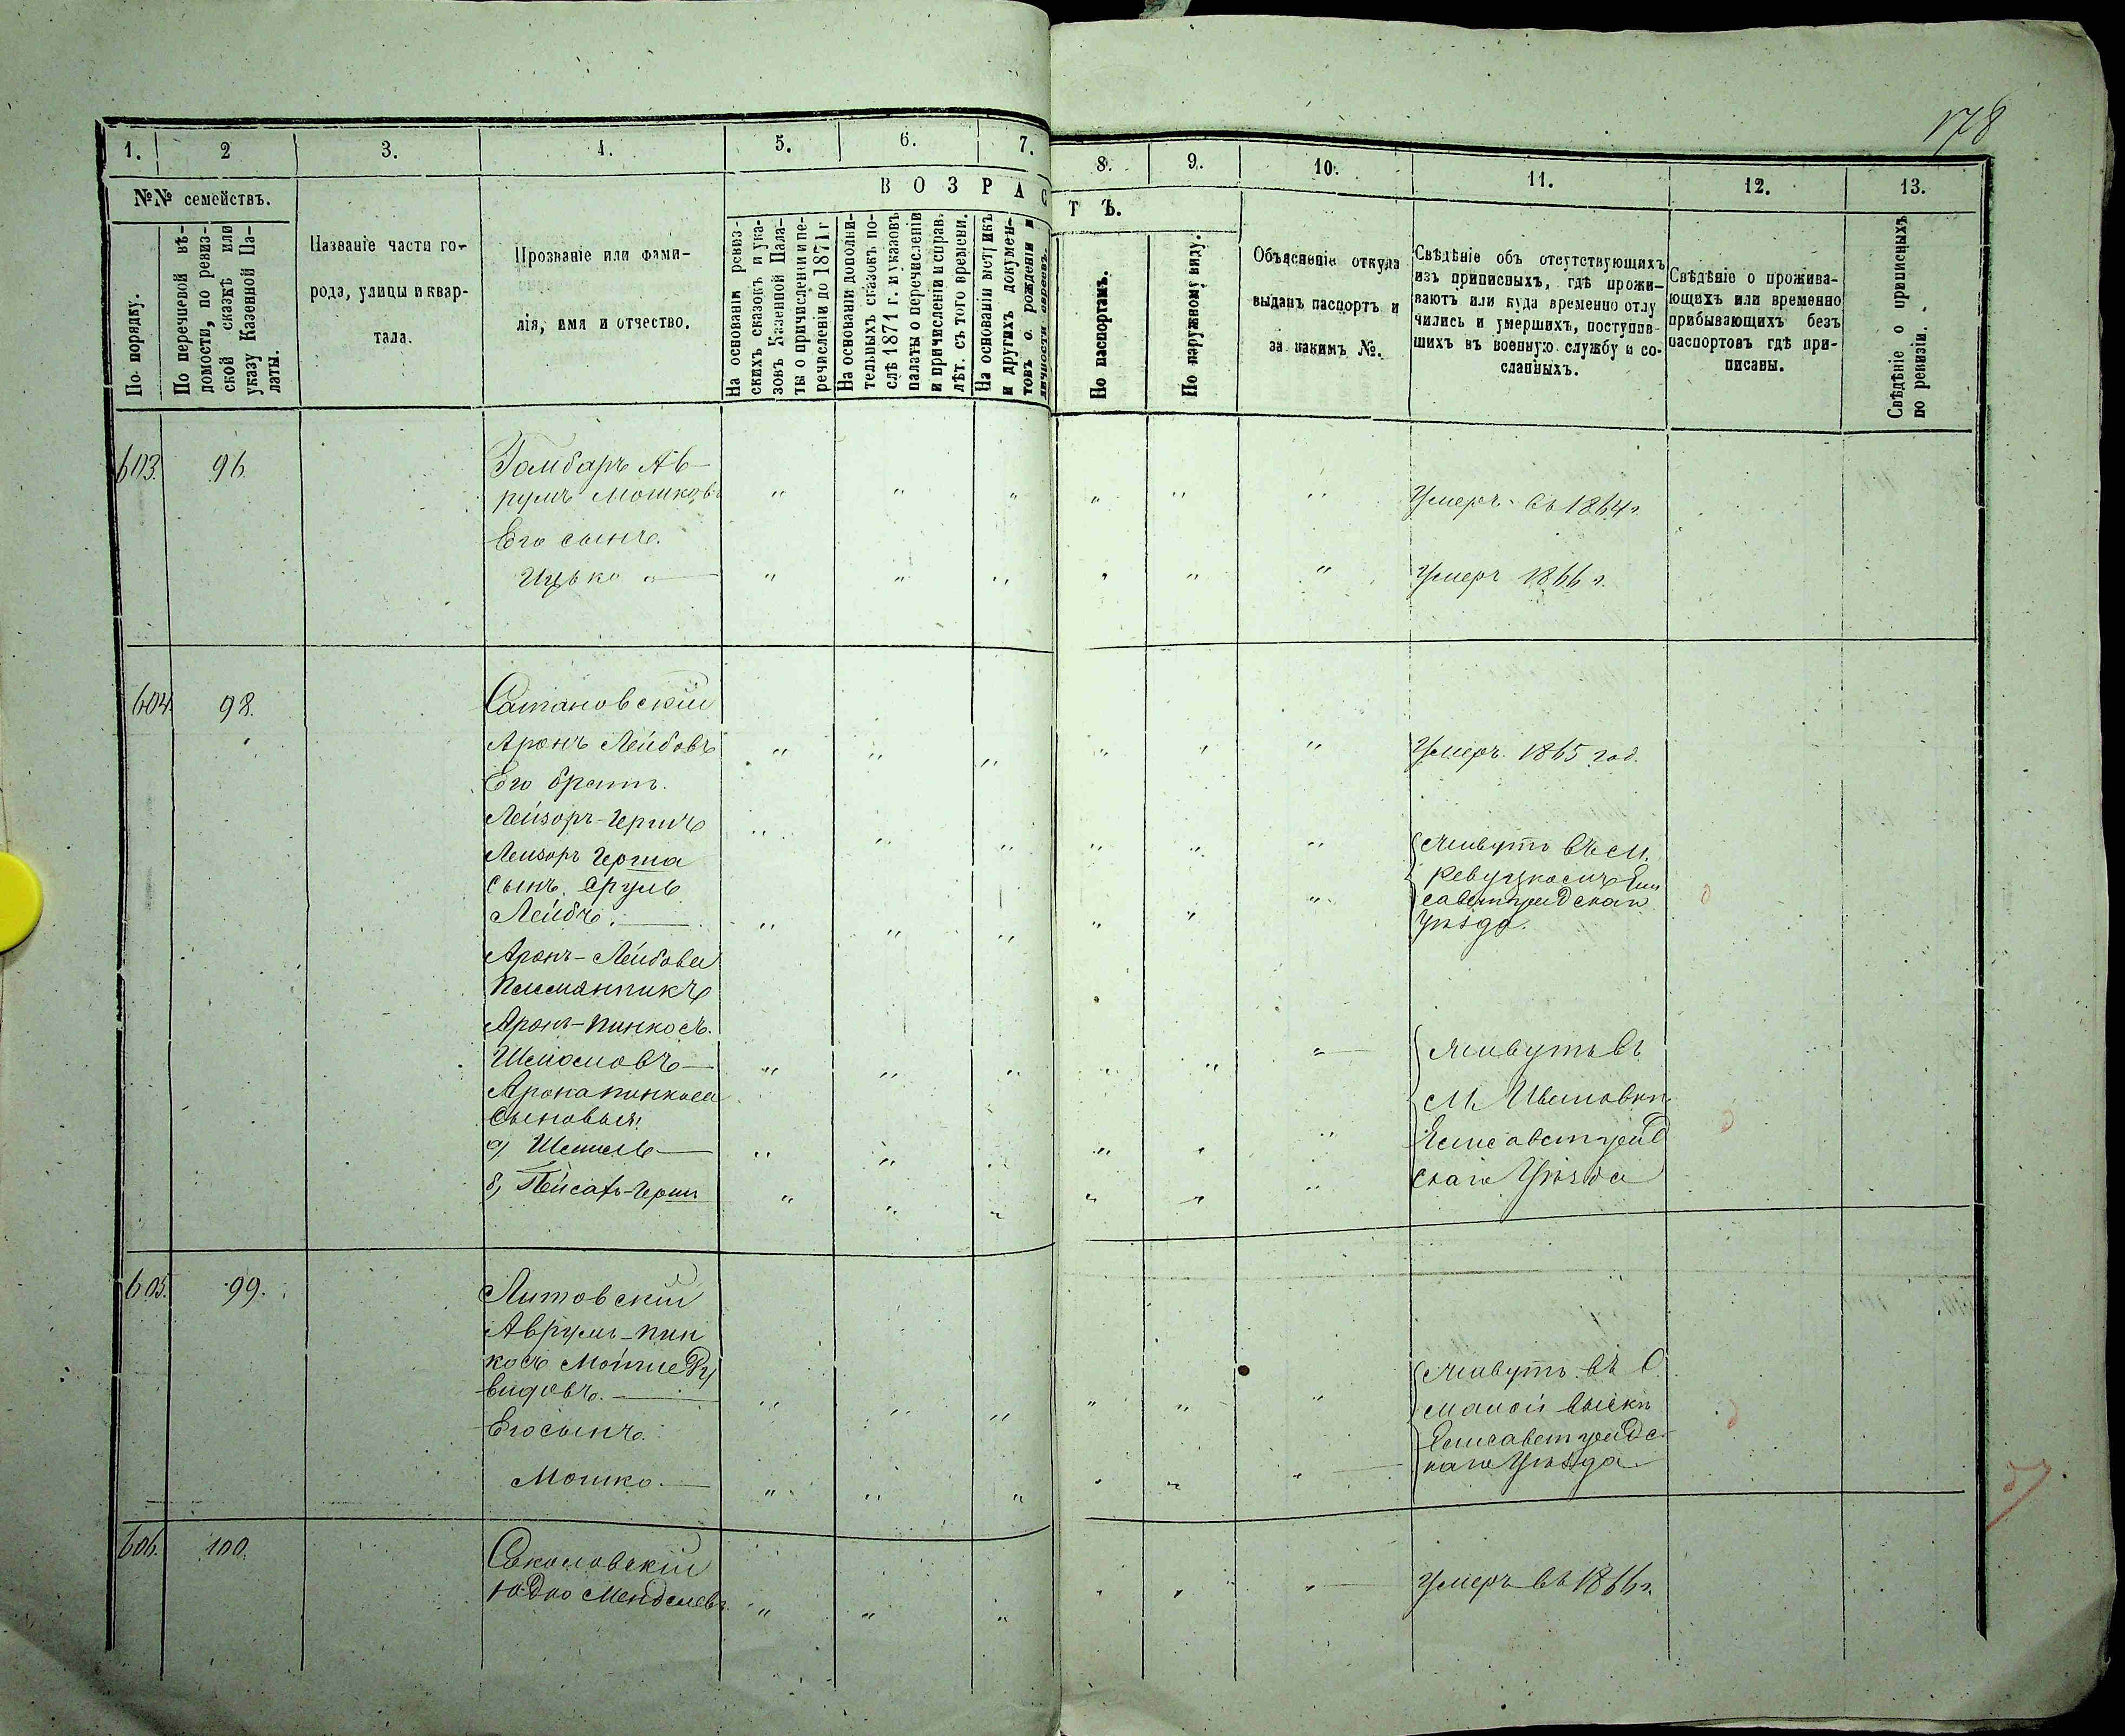 178
1. 2 3. 4. 5. 6. 7. 8. 9. 10. 11. 12. 13.
№№ семействъ.
ВОЗРАСТЪ.
По порядку.
По перечневой вѣ-
домости, по ревиз-
ской сказкѣ или
указу Казенной Па-
латы.
Названіе части го-
рода, улицы и квар-
тала.
Прозваніе или фами-
лія, имя и отчество.
На основаніи ревиз-
скихъ сказокъ и ука-
зовъ Казенной Пала-
ты о причисленіи и пе-
речисленіи до 1871 г
На основаніи дополни-
тельныхъ сказокъ по-
слѣ 1871 г. и указовъ
палаты о перечисленіи
и причисленіи и справ.
лѣт. съ того времени.
На основаніи метрикъ
и другихъ докумен-
товъ о рожденіи и
личности евреевъ.
По паспортамъ.
По наружному виду.
Объясненіе откуда
выданъ паспортъ и
за какимъ №.
Свѣдѣніе объ отсутствующихъ
изъ приписныхъ, гдѣ прожи-
ваютъ или куда временно отлу
чились и умершихъ, поступив-
шихъ въ военную службу и со-
сланныхъ.
Свѣдѣніе о прожива-
ющихъ или временно
прибывающихъ безъ
паспортовъ гдѣ при-
писаны.
Свѣдѣніе о приписныхъ
по ревизіи.
603. 96. Гамбаръ Ав-
румъ Мошковъ " " " " " " Умеръ въ 1864 г.
Его сынъ.
Ицько " " " " " " Умеръ 1866 г.
604 98. Сатановскій
Аронъ Лейбовъ " " " " " " Умеръ 1865 год.
Его братъ.
Лейзоръ-Гершъ " " " " " "
Лейзоръ Герша
сынъ. Сруль
Лейбъ. " " " " " "
Живутъ въ м.
Ревуцкомъ Ели
саветградскаго
Уѣзда.
Аронъ-Лейбова
Племянникъ
Аронъ-Пинкосъ.
Шмооловъ " " " " " "
Арона Пинкоса
Сыновья:
а) Шмиль " " " " " "
б) Пейсахъ-Герш " " " " " "
Живутъ въ
М. Ивановки
Елисаветград
скаго Уѣзда
605. 99. Литовскій
Аврумъ-Пин
косъ Мойше Ду
видовъ. " " " " " "
Его сынъ.
Мошко. " " " " " "
Живутъ въ С.
Малой Выски
Елисаветградс
каго Уѣзда
606. 100. Соколовскій
Юдко Менделевъ " " " " " " Умеръ въ 1866 г.